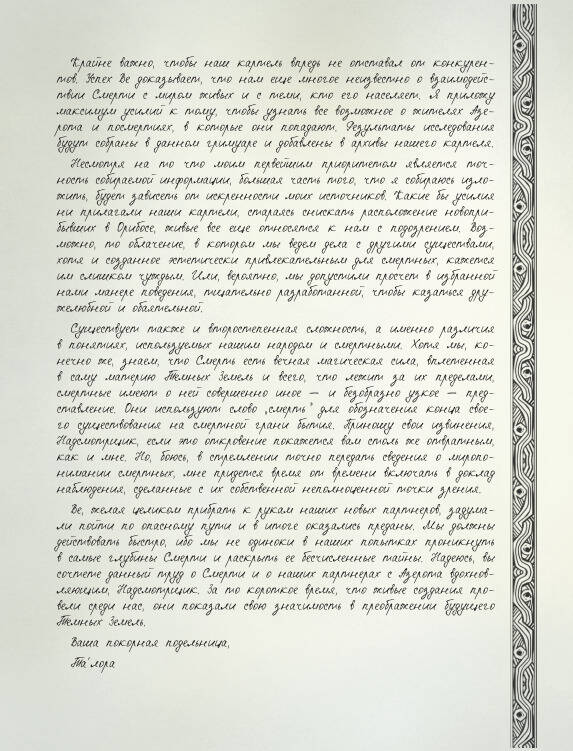 Крайне важно, чтобы наш картель впредь не отставал от конкурен-
тов. Успех Ве доказывает, что нам еще многое неизвестно о взаимодейс-
твии Смерти с миром живых и с теми, кто его населяет. Я приложу
максимум усилий к тому, чтобы узнать все возможное о жителях Азе-
рота и посмертиях, в которые они попадают. Результаты исследования
будут собраны в данном гримуаре и добавлены в архивы нашего картеля.
Несмотря на то что моим первейшим приоритетом является точ-
ность собираемой информации, большая часть того, что я собираюсь изло-
жить, будет зависеть от искренности моих источников. Какие бы усилия
ни прилагали наши картели, стараясь снискать расположение новопри-
бывших в Орибос, живые все еще относятся к нам с подозрением. Воз-
можно, то облачение, в котором мы ведем дела с другими существами,
хотя и созданное эстетически привлекательным для смертных, кажется
им слишком чуждым. Или, вероятно, мы допустили просчет в избранной
нами манере поведения, тщательно разработанной, чтобы казаться дру-
желюбной и обаятельной.
Существует также и второстепенная сложность, а именно различия
в понятиях, используемых нашим народом и смертными. Хотя мы, ко-
нечно же, знаем, что Смерть есть вечная магическая сила, вплетенная
в саму материю Темных Земель и всего, что лежит за их пределами,
смертные имеют о ней совершенно иное — и безобразно узкое — пред-
ставление. Они используют слово „смерть“ для обозначения конца свое-
го существования на смертной грани бытия. Приношу свои извинения,
Надсмотрщик, если это откровение покажется вам столь же отвратным,
как и мне. Но, боюсь, в стремлении точно передать сведения о миропо-
нимании смертных, мне придется время от времени включать в доклад
наблюдения, сделанные с их собственной неполноценной точки зрения.
Ве, желая целиком прибрать к рукам наших новых партнеров, задума-
ли пойти по опасному пути и в итоге оказались преданы. Мы должны
действовать быстро, ибо мы не одиноки в наших попытках проникнуть
в самые глубины Смерти и раскрыть ее бесчисленные тайны. Надеюсь, вы
сочтете данный труд о Смерти и о наших партнерах с Азерота вдохнов-
ляющим, Надсмотрщик. За то короткое время, что живые создания про-
вели среди нас, они показали свою значимость в преображении будущего
Темных Земель.
Ваша покорная подельница,
Та'лора